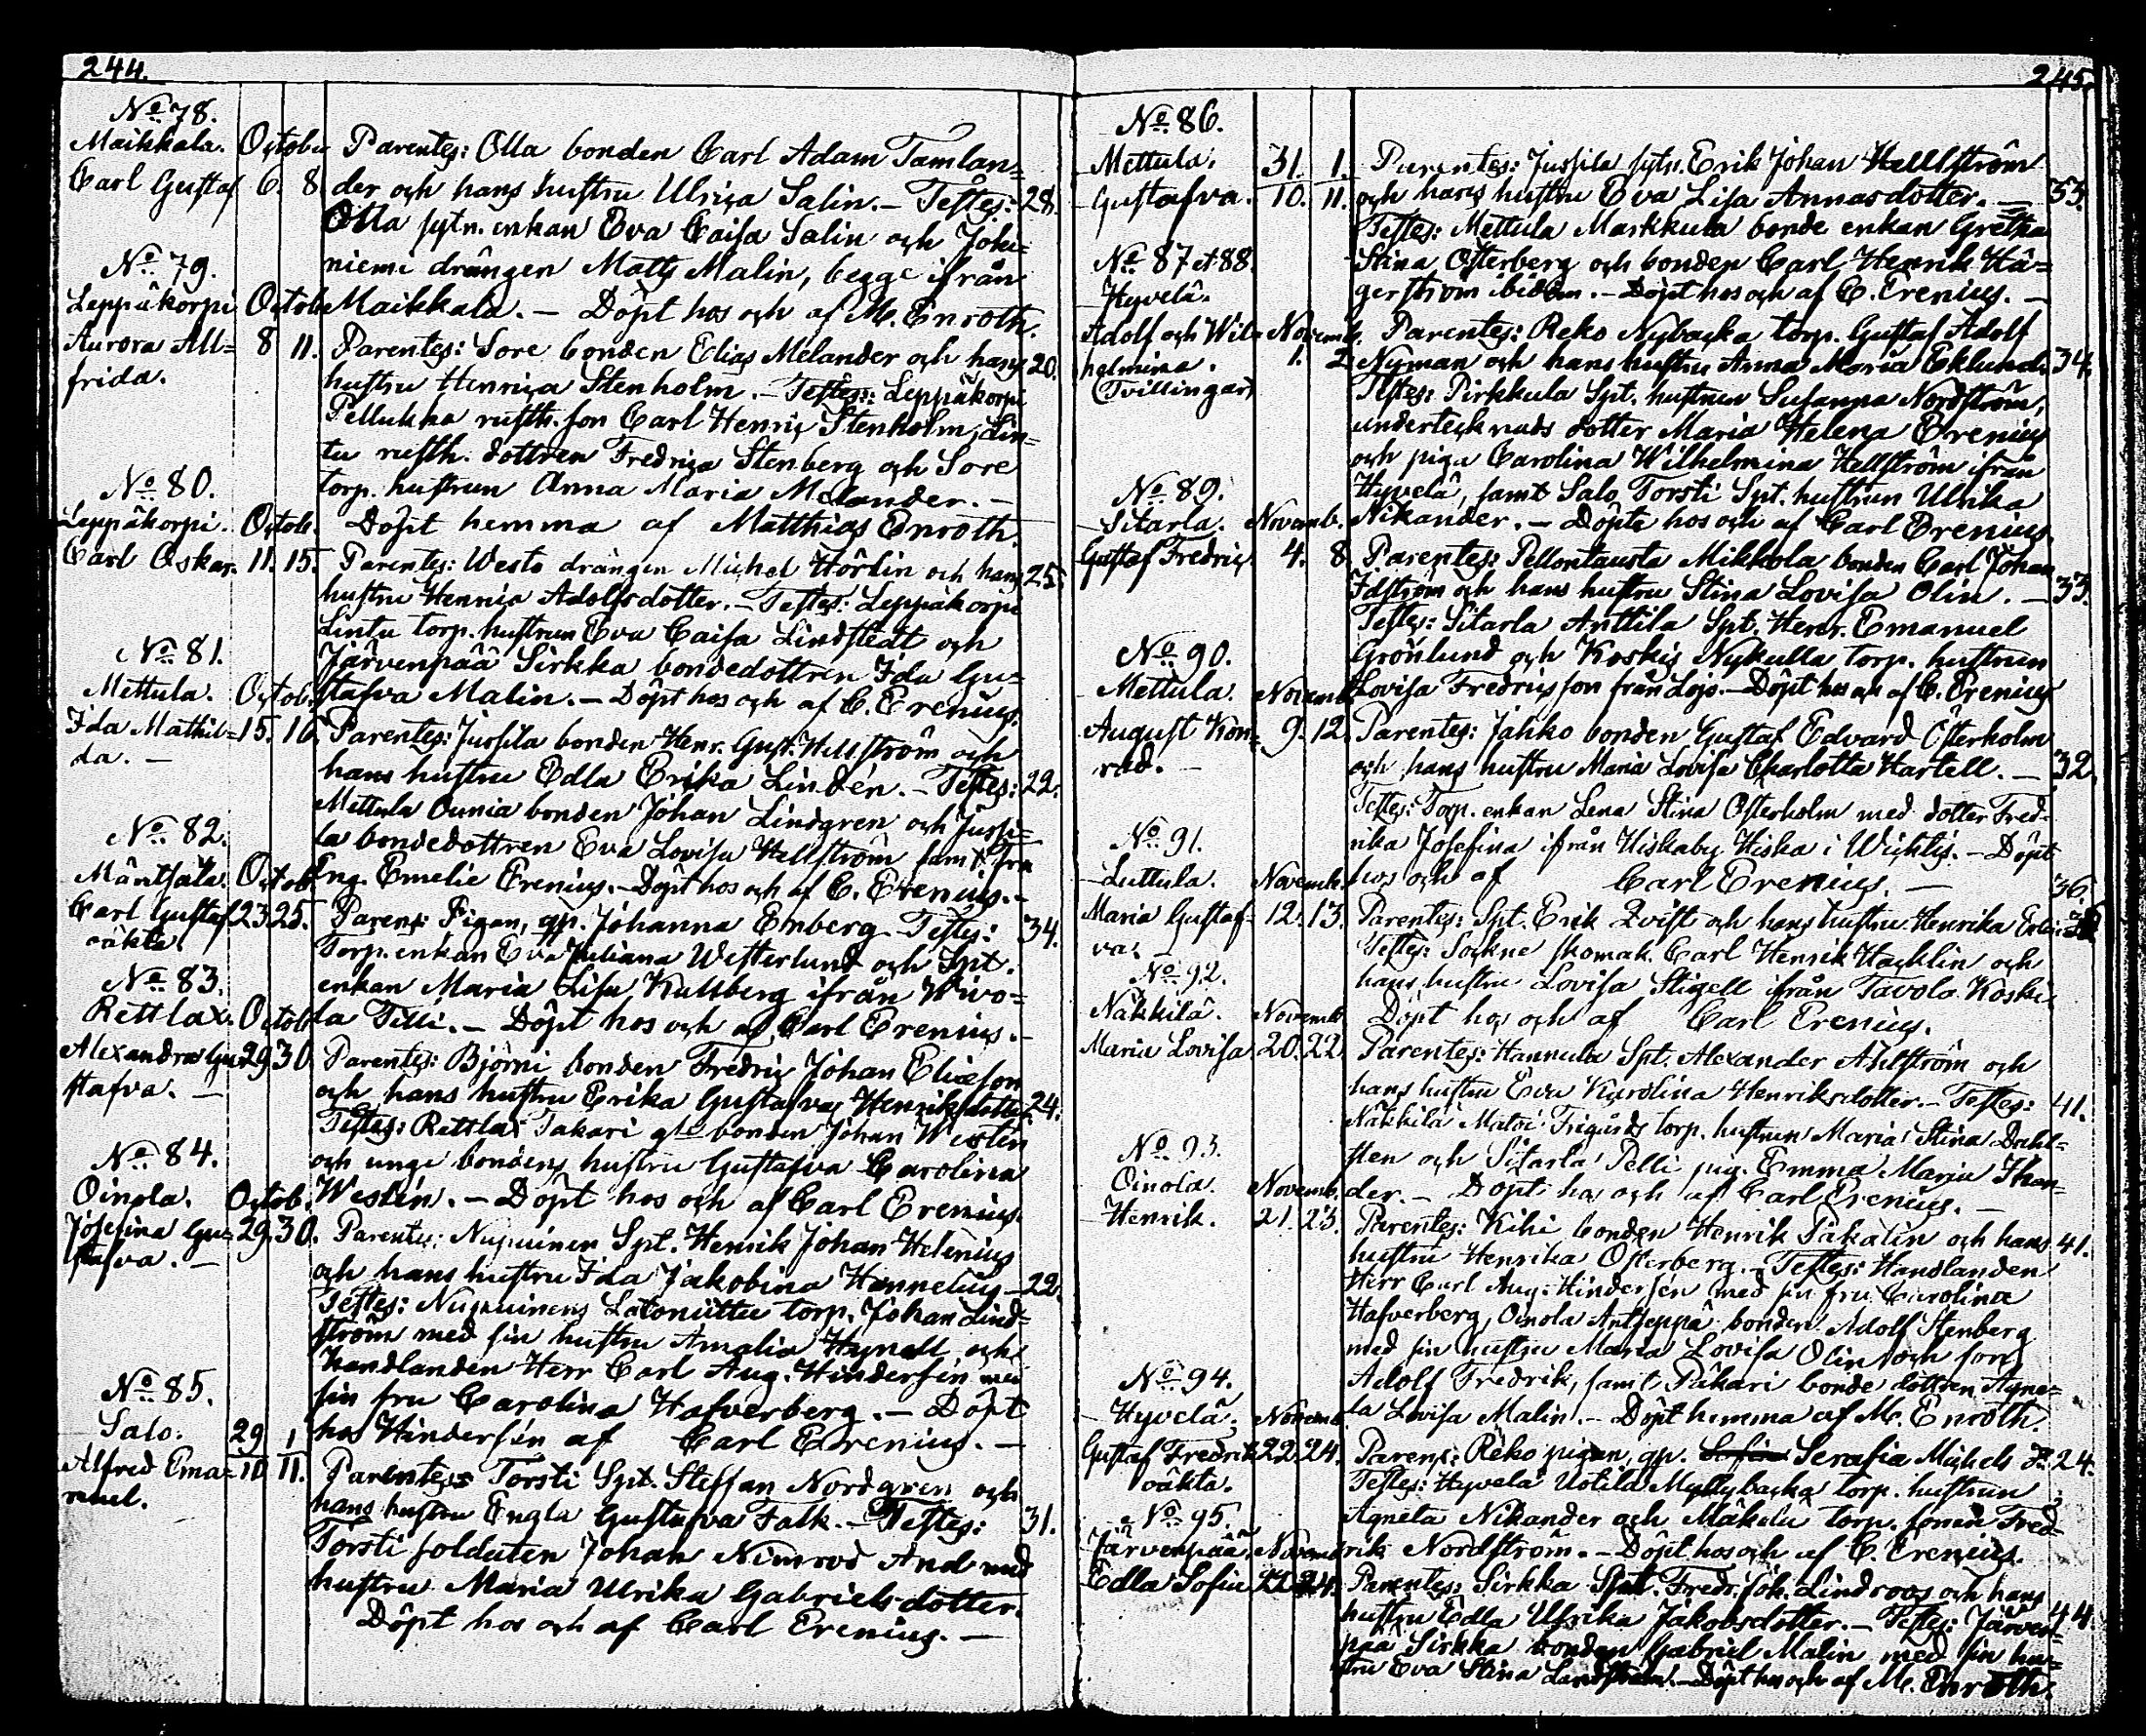 244.
No 78.
Maikkala. October
Carl Gustaf 6. 8.
Parentes: Olla bonden Carl Adam Tamlan=
der och hans hustru Ulrica Salin. — Testes: 28.
Olla sytn. enkan Eva Caisa Salin och Joki=
niemi drängen Matts Malin, begge ifrån
Maikkala. — Döpt hos och af M. Enroth.
No 79.
Leppäkorpi Octob.
Aurora All= 8 11.
frida.
Parentes: Sore bonden Elias Melander och hans 20.
hustru Henrica Stenholm. — Testes: Leppäkorpi
Pellukka rusth. son Carl Henric Stenholm, Lin=
tu rusth. dottren Fredrica Stenberg och Sore
torp. hustrun Anna Maria Melander. —
Döpt hemma af Matthias Enroth.
No 80.
Leppäkorpi. Octob.
Carl Oskar. 11. 15.
Parentes: Westo drängen Michel Hörlin och hans 25.
hustru Henrica Adolfsdotter. — Testes: Leppäkorpi
Lintu torp. hustrun Eva Caisa Lindstedt och
Järvenpää Sirkka bondedottren Ida Gu=
stafva Malin. — Döpt hos och af C. Erenius.
No 81.
Mettula. Octob.
Ida Mathil= 15. 16.
da. —
Parentes: Jussila bonden Henr. Gust. Hellström och
hans hustru Edla Erika Lindén. — Testes: 22.
Mettula Ounia bonden Johan Lindgren och Jussi=
la bondedottren Eva Lovisa Hellström samt fru
Eng. Emelie Erenius. — Döpt hos och af C. Erenius. —
No 82.
Mäntsälä. Octob.
Carl Gustaf 23. 25.
oäkta.
Parens: Pigan, gp. Johanna Emberg. Testes: 34.
Torp. enkan Eva Juliana Westerlund och Spt.
enkan Maria Lisa Kullberg ifrån Wivo=
la Tilli. — Döpt hos och af Carl Erenius. —
No 83.
Rettlax. Octob.
Alexandra Gu= 29. 30.
stafva. —
Parentes: Björni bonden Fredric Johan Elieson
och hans hustru Erika Gustafva Henriksdotter. 24.
Testes: Rettlax Takari gle bonden Johan Westén
och unge bondens hustru Gustafva Carolina
Westén. — Döpt hos och af Carl Erenius.
No 84.
Oinola. Octob.
Josefina Gu= 29. 30.
stafva. —
Parentes: Nupuinen Spt. Henrik Johan Helenius
och hans hustru Ida Jakobina Hannelius — 22.
Testes: Nupuinens Latoniittu torp. Johan Lind=
ström med sin hustru Amalia Hynell och
handlanden Herr Carl Aug. Hindersén med
sin fru Carolina Hafverberg. — Döpt
hos Hindersén af Carl Erenius. —
No 85.
Salo. 29 1
Alfred Ema= 10 11.
nuel.
Parentes: Torsti Spt. Steffan Nordgren och
hans hustru Engla Gustafva Falk. — Testes: 31.
Torsti soldaten Johan Nimrod And med
hustru Maria Ulrika Gabrielsdotter.
Döpt hos och af Carl Erenius. —
245.
No 86.
Mettula. 31. 1.
Gustafva. 10. 11.
Parentes: Jussila sytn. Erik Johan Hellström
och hans hustru Eva Lisa Annasdotter. — 33.
Testes: Mettula Markkula bonde enkan Gretha
Stina Österberg och bonden Carl Henrik Hä=
gerström ibidem. — Döpt hos och af C. Erenius. —
No 87 et 88.
Hyvelä.
Adolf och Wil= Novemb.
helmina. 1. 2.
(Tvillingar)
Parentes: Reko Nybacka torp. Gustaf Adolf
Nyman och hans hustru Anna Maria Eklund. 34.
Testes: Pirkkula Spt. hustrun Susanna Nordström,
undertecknads dotter Maria Helena Erenius
och piga Carolina Wilhelmina Hellström ifrån
Hyvelä, samt Salo Torsti Spt. hustrun Ulrika
Nikander. — Döpte hos och af Carl Erenius.
No 89.
Sitarla. Novemb.
Gustaf Fredric 4. 8.
Parentes: Pellontausta Mikkola bonden Carl Johan
Idström och hans hustru Stina Lovisa Olin. — 33.
Testes: Sitarla Anttila Spt. Henr. Emanuel
Grönlund och Koskis Nykulla torp. hustrun
Lovisa Fredricsson från Lojo. — Döpt hos och af C. Erenius
No 90.
Mettula. Novemb.
August Kon= 9. 12.
rad. —
Parentes: Jahko bonden Gustaf Edvard Österholm
och hans hustru Maria Lovisa Charlotta Hartell. — 32.
Testes: Torp. enkan Lena Stina Österholm med dotter Fred=
rika Josefina ifrån Hiskaby Hiska i Wichtis. — Döpt
hos och af Carl Erenius. —
No 91.
Luttula. Novemb.
Maria Gustaf= 12. 13.
va. —
36.
Parentes: Spt. Erik Qvist och hans hustru Henrika
Testes: Sockne skomak. Carl Henrik Hacklin och
hans hustru Lovisa Stigell ifrån Tavola Koski.
Döpt hos och af Carl Erenius.
No 92.
Näkkilä. Novemb.
Maria Lovisa 20. 22.
Parentes: Hannula Spt. Alexander Ahlström och
hans hustru Eva Karolina Henriksdotter. — Testes: 41.
Näkkilä Matoi Frigårds torp. hustrun Maria Stina Dahl=
sten och Sitarla Pelli pig. Emma Maria
der. — Döpt hos och af Carl Erenius. —
No 93.
Oinola. Novemb.
Henrik. 21. 23.
Parentes: Kihi bonden Henrik Päkalin och hans 41.
hustru Henrika Österberg. — Testes: Handlanden
Herr Carl Aug. Hindersén med sin fru Carolina
Hafverberg, Oinola Antseppä bonden Adolf Stenberg
med sin hustru Maria Lovisa Olin och son
Adolf Fredrik, samt Päkari bonde dottren Agne=
ta Lovisa Malin. — Döpt hemma af M. Enroth.
No 94.
Hyvelä. Novemb.
Gustaf Fredrik 22. 24.
oäkta.
Parens: Reko pigan, gp. Serafia Michels D. 24.
Testes: Hyvelä Uotila Myllybacka torp. hustrun
Agneta Nikander och Mäkelä torp. sonen Fred=
rik Nordström. — Döpt hos och af C. Erenius.
No 95.
Järvenpää. Novemb.
Edla Sofia 22. 24.
Parentes: Sirkka Spt. Fredr. Joh. Lindroos och hans
hustru Edla Ulrika Jakobsdotter. — Testes: Järven= 44.
pää Sirkka bonden Gabriel Malin med sin hu=
stru Eva Stina Lindström. — Döpt hos och af M. Enroth.